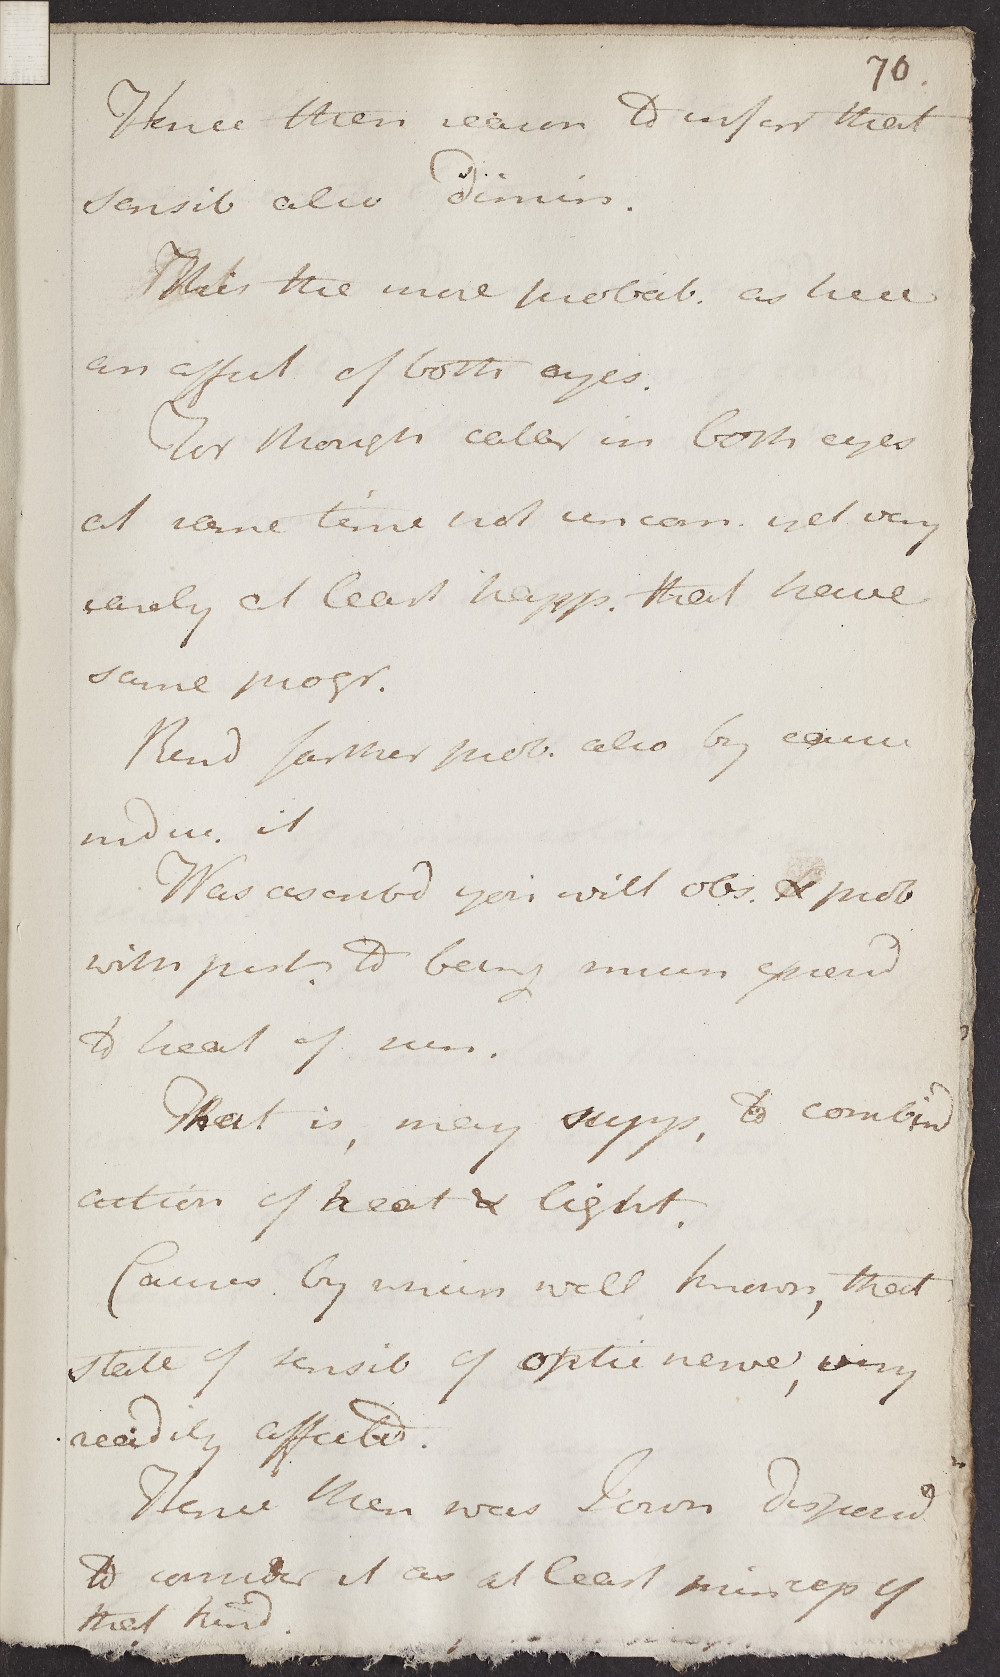 70.
Hence then reason to infer that
sensib also dimin.
This the more probab. as here
an affect of both eyes.
For though catar in both eyes
at same time not uncom. yet very
rarely at least happ. that have
same progr.
Rend farther prob. also by cause
induc. it
Was ascribd you will obs. & prob
with just. to being much exposd
to heat of sun.
That is, may supp, to combind
action of heat & light.
Causes by which well known, that
state of sensib of optic nerve, very
readily affected.
Hence then was I own disposd
to consider it as at least princip of
that kind.